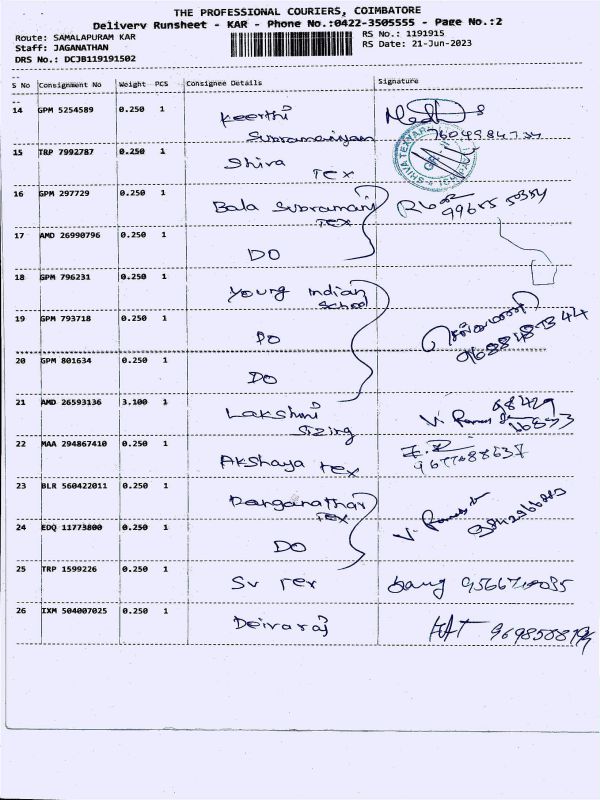 THE PROFESSIONAL COURIERS, COIMBATORE
Delivery Runsheet - KAR - Phone No.:0422-3505555 - Page No.:2
Route: SAMALAPURAM KAR
RS No.: 1191915
Staff: JAGANATHAN
RS Date: 21-Jun-2023
DRS No.: DCJB119191502
S No Consignment No Weight PCS Consignee Details Signature
14 GPM 5254589 0.250 1 Keerthi
Subramaniyam
15 TRP 7992787 0.250 1 Shiva
Tex
16 GPM 297729 0.250 1 Bala Subramani
Tex
17 AMD 26990796 0.250 1 DO
18 GPM 796231 0.250 1 Young Indian
School
19 GPM 793718 0.250 1 DO
20 GPM 801634 0.250 1 DO
21 AMD 26593136 3.100 1 Lakshmi
Sizing
22 MAA 294867410 0.250 1 Akshaya Tex
9677688637
23 BLR 560422011 0.250 1 Ranganathar
Tex
24 EDQ 11773800 0.250 1 DO
25 TRP 1599226 0.250 1 SV Tex
26 IXM 504007025 0.250 1 Deivaraj